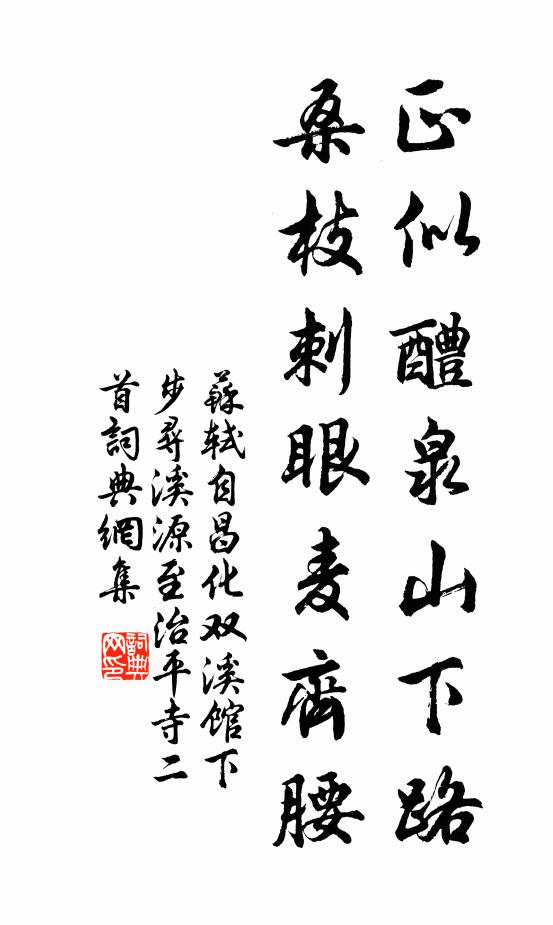 正似醴泉山下路
桑枝刺眼麦齊腰
蘇軾自昌化双溪馆下
步尋溪源至治平寺二
首詞典網集
詞典网印